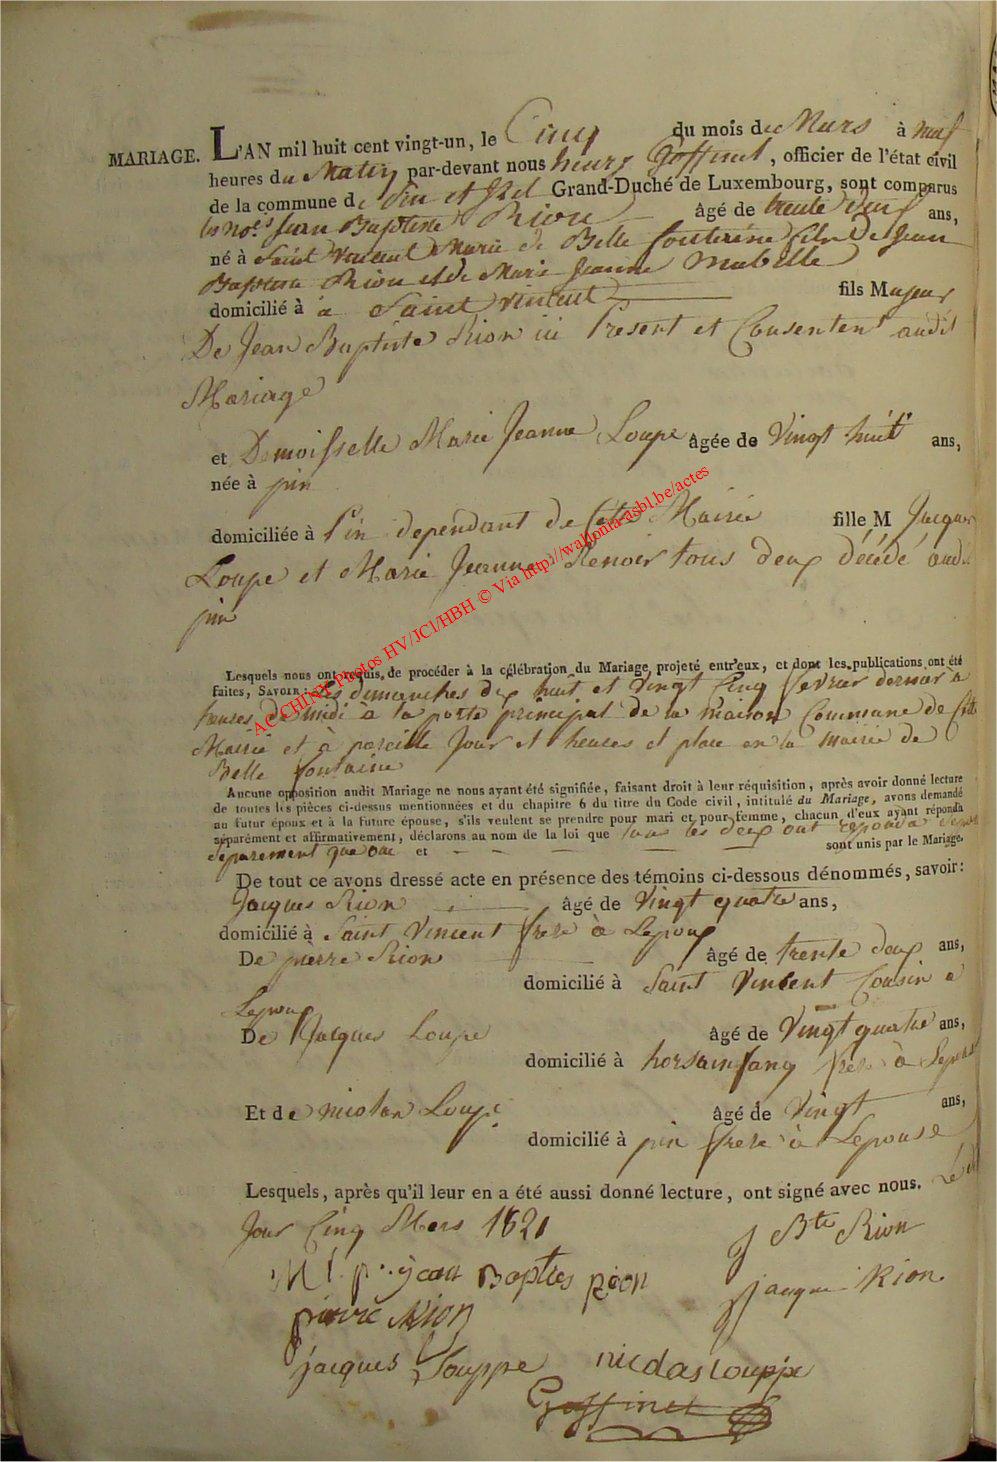 MARIAGE. L'AN mil huit cent vingt-un, le Cinq du mois de Mars à neuf
heures du Matin par-devant nous henry Goffinet, officier de l'état civil
de la commune de Pin et Izel Grand-Duché de Luxembourg, sont comparus
Jean Baptiste Rion âgé de trente deux ans,
né à Saint Vincent Marie de Belle fontaine fils de Jean
Baptiste Rion et de Marie Jeanne Mabille
domicilié à à Saint vincent fils Majeur
De Jean Baptiste Rion ici Present et Consentent audit
Mariage
et Demoisselle Marie Jeanne Loupe âgée de Vingt huit ans,
née à pin
domiciliée à Pin dependant de Cette Mairie fille M Jacques
Loupe et Marie Jeanne Renoir tous deux décédé audit
pin
Lesquels nous ont requis de procéder à la célébration du Mariage projeté entr'eux, et dont les publications ont été
faites, SAVOIR: les dimanches dix huit et Vingt Cinq fevrier dernier à
heures de midi à la porte principal de la maison Commune de Cette
Mairie et à pareille Jour et heures et place en la mairie de
Belle fontaine
Aucune opposition audit Mariage ne nous ayant été signifiée, faisant droit à leur réquisition, après avoir donné lecture
de toutes les pièces ci-dessus mentionnées et du chapitre 6 du titre du Code civil, intitulé du Mariage, avons demandé
au futur époux et à la future épouse, s'ils veulent se prendre pour mari et pour femme, chacun d'eux ayant répondu
séparément et affirmativement, déclarons au nom de la loi que tous les deux ont repondu
separement que oui et sont unis par le Mariage.
De tout ce avons dressé acte en présence des témoins ci-dessous dénommés, savoir:
Jacques Rion âgé de Vingt quatre ans,
domicilié à Saint Vincent frere à Lepoux
De pierre Rion âgé de trente deux ans,
domicilié à Saint Vincent Cousin à
Lepoux
De Jacques Loupe âgé de Vingt quatre ans,
domicilié à horsainfang frere à Lepouse
Et de nicolas Loupe âgé de Vingt ans,
domicilié à pin frere à Lepouse
Lesquels, après qu'il leur en a été aussi donné lecture, ont signé avec nous. Le dit
Jour Cinq Mars 1821
J Bte Rion
jean Bapties Rion
jacque Rion
pierre Rion
jacques Louppe nicolas louppe
Goffinet
AC CHINY Photos HV/JCl/HBH © Via http://wallonia-asbl.be/actes